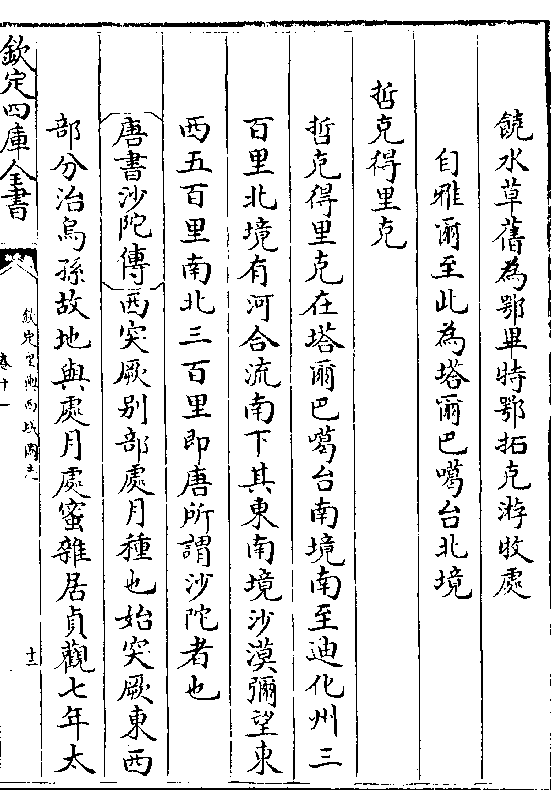 饒水草舊為鄂畢特鄂拓克游牧處
自雅爾至此為塔爾巴噶台北境
哲克得里克
哲克得里克在塔爾巴噶台南境南至迪化州三
百里北境有河合流南下其東南境沙漠彌望東
西五百里南北三百里即唐所謂沙陀者也
唐書沙陀傳西突厥别部處月種也始突厥東西
部分治烏孫故地與處月處蜜雜居貞觀七年太
欽定四庫全書
欽定皇輿西域圖志
卷十一
十三